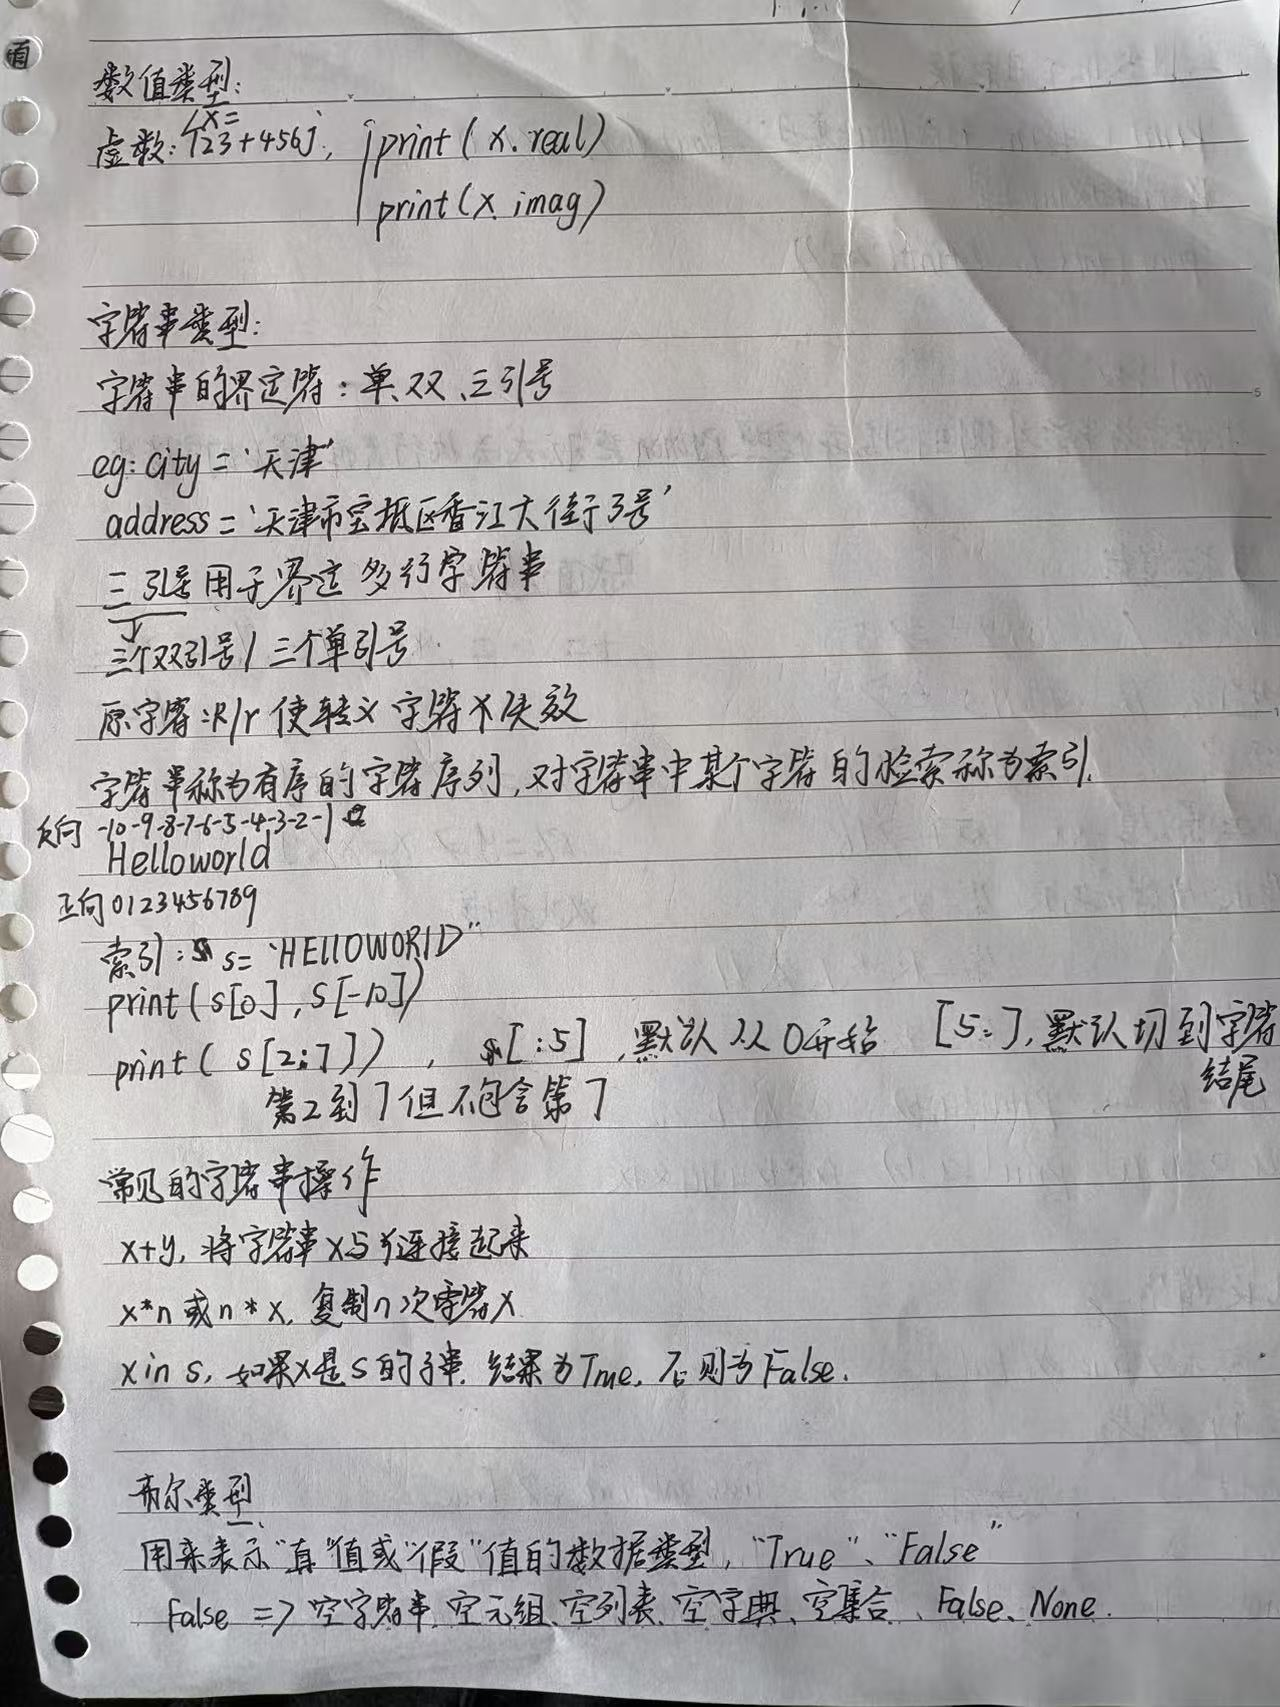 数值类型:
x=
虚数:123+456j, print(x.real)
print(x.imag)
字符串类型:
字符串的界定符:单、双、三引号
eg: city = '天津'
address = '天津市宝坻区香江大街3号'
三引号用于界定多行字符串
三个双引号/三个单引号
原字符:R/r 使转义字符失效
字符串称为有序的字符序列,对字符串中某个字符的检索称为索引.
反向 -10-9-8-7-6-5-4-3-2-1
Helloworld
正向 0123456789
索引: s= "HEllOWORlD"
print(s[0], s[-10])
print( s[2:7]) , s[:5],默认从0开始 [5:],默认切到字符
结尾
第2到7但不包含第7
常见的字符串操作
x+y, 将字符串x与y连接起来
x*n 或 n*x, 复制n次字符x
x in s, 如果x是s的子串, 结果为True, 否则为False.
布尔类型
用来表示"真"值或"假"值的数据类型, "True"、"False"
False => 空字符串、空元组、空列表、空字典、空集合、False、None.